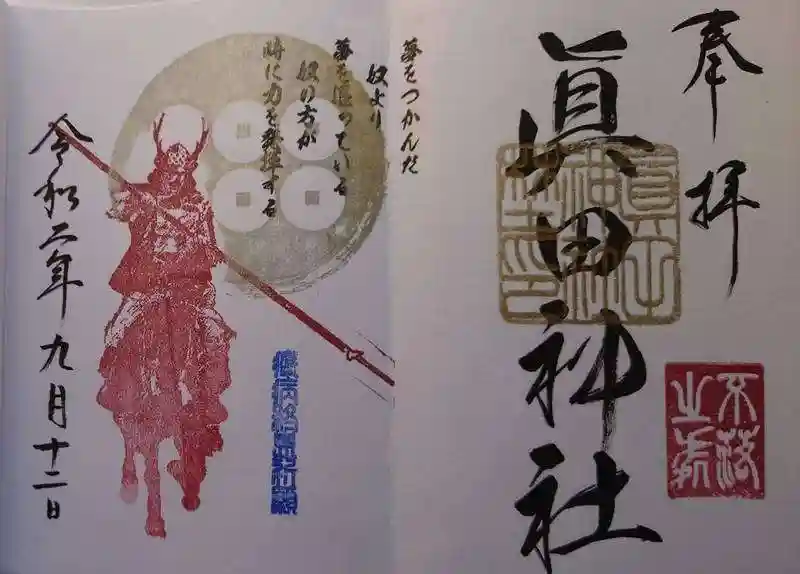 奉拝
眞田神社
眞田神社神璽
不落之城
夢をつかんだ
奴より
夢を追っている
奴の方が
時に力を発揮する
令和二年九月十二日